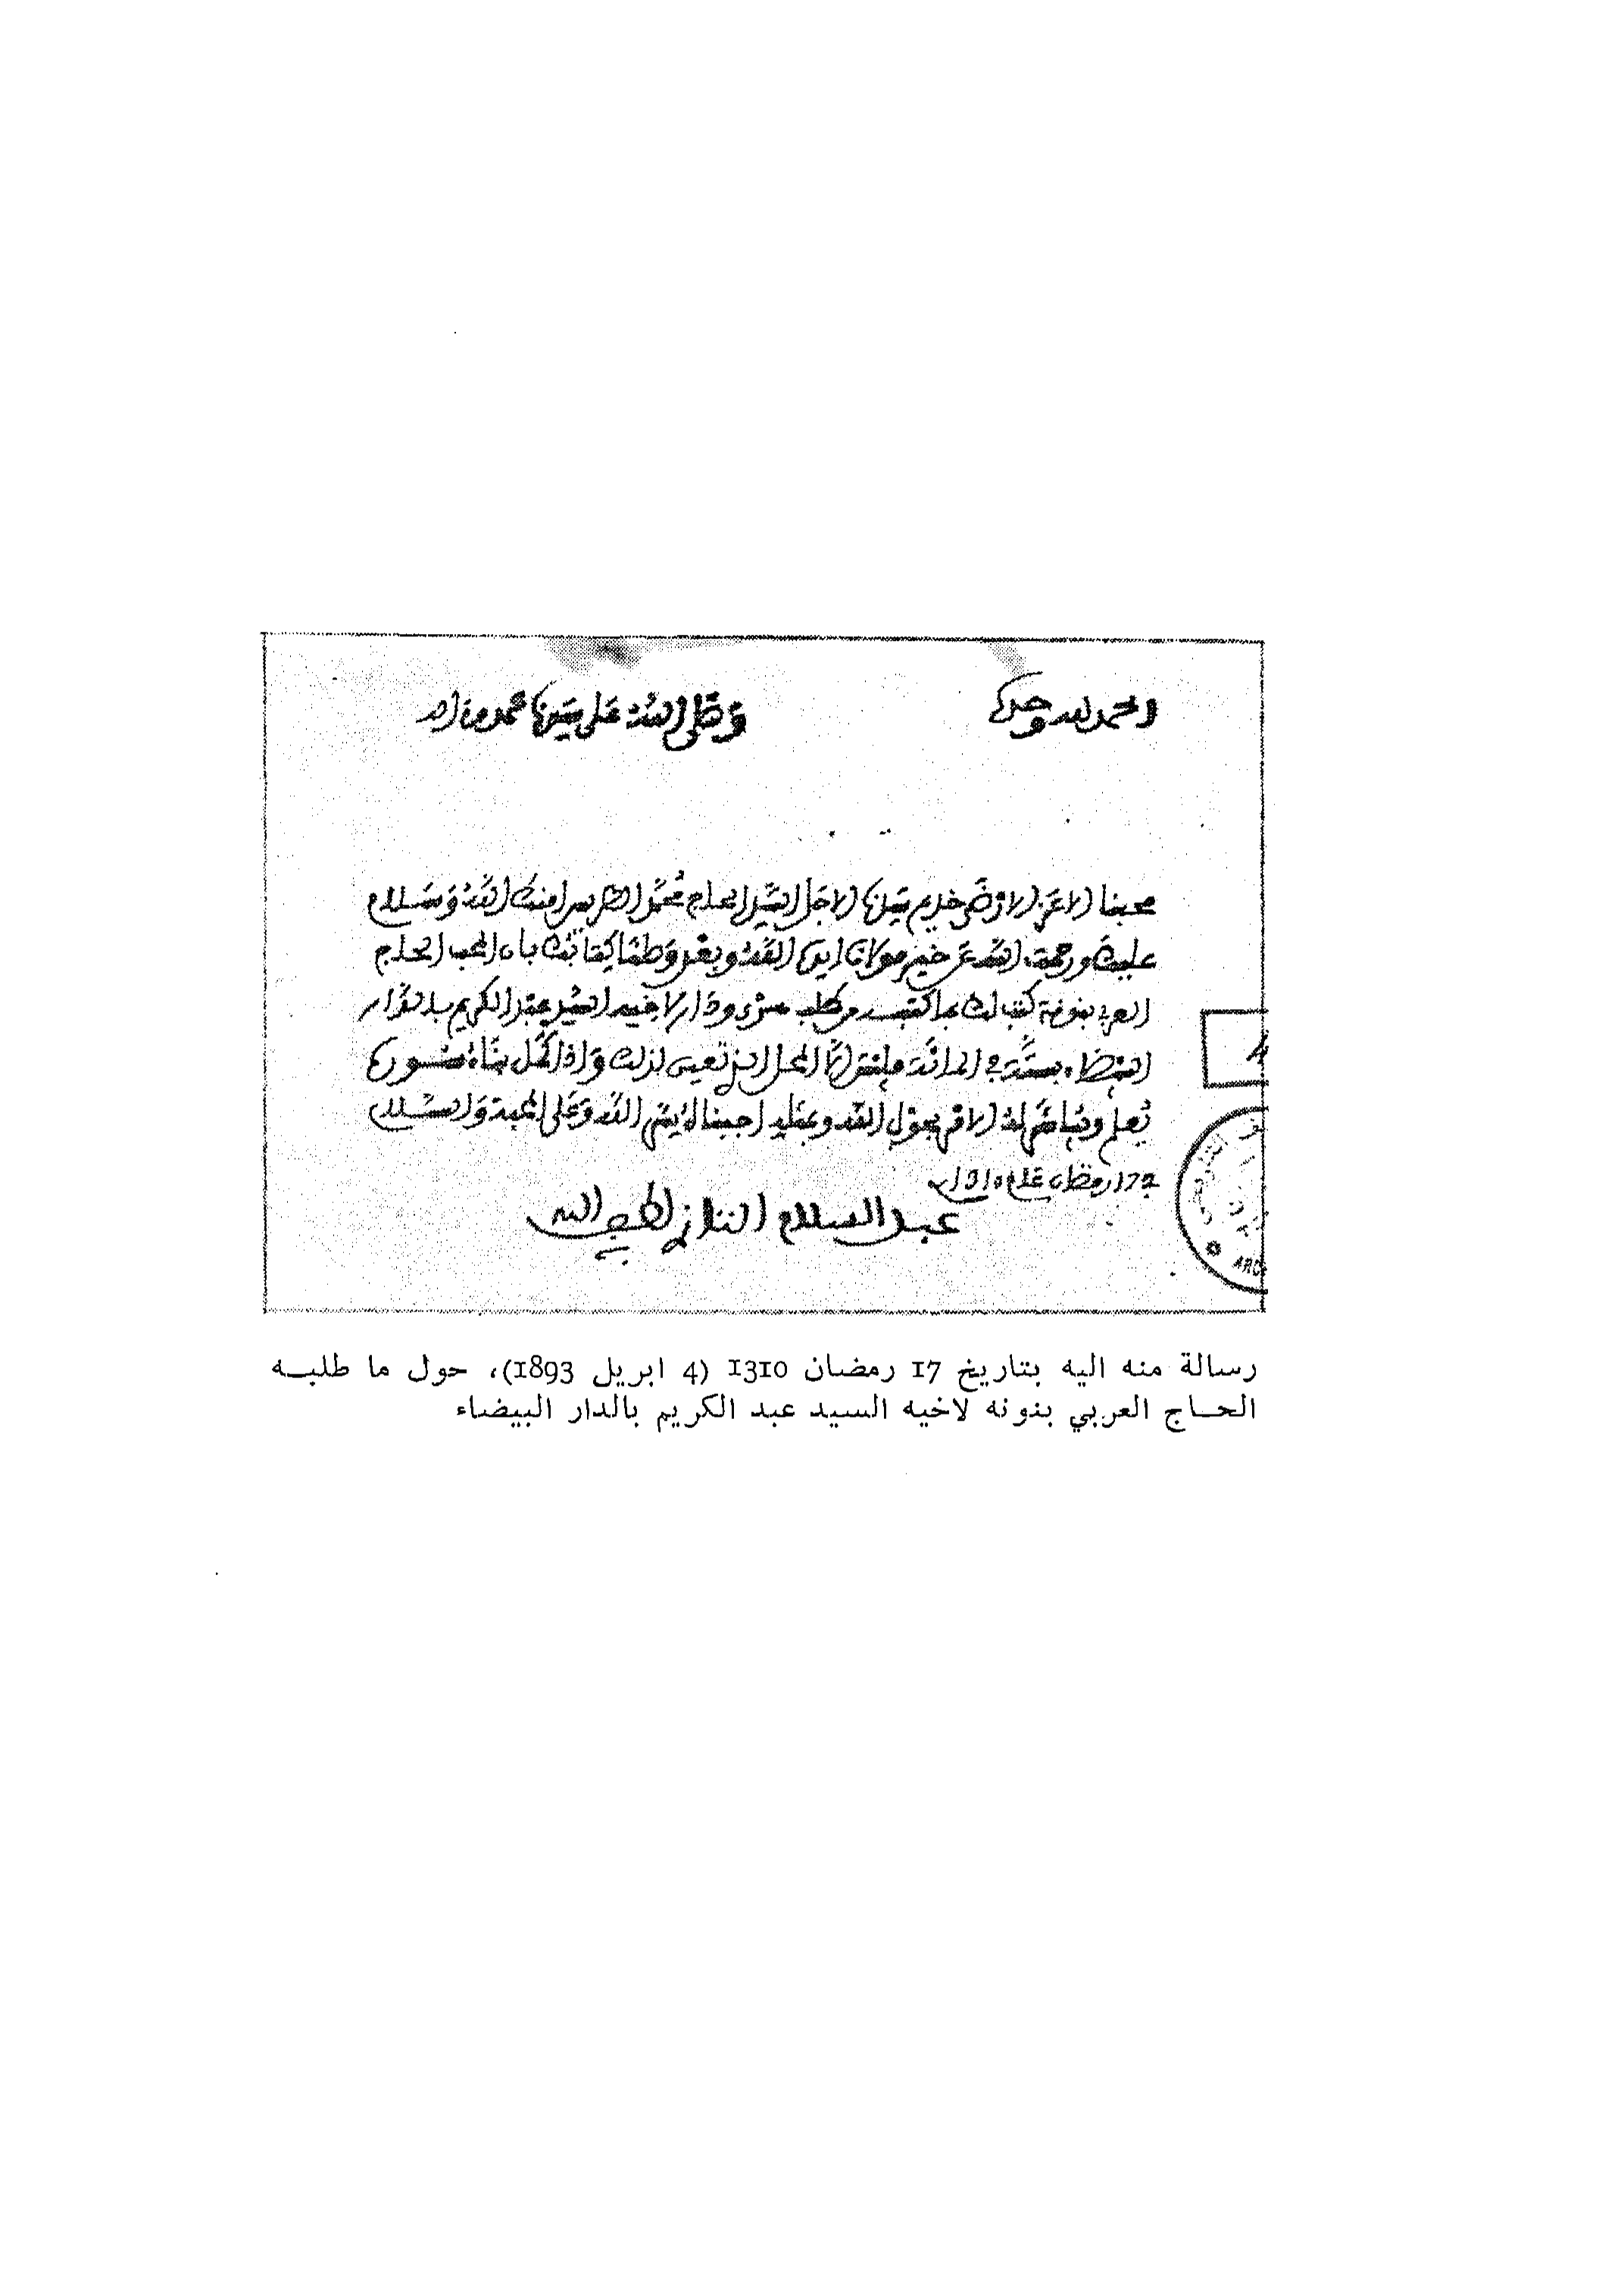 الحمد لله وحده
وصلى الله على سيدنا محمد وءاله
محبنا الاعز الارضى خديم سيدنا الاجل السيد الحاج محمد الطريس امنك الله وسلام
عليك ورحمت الله عن خير مولانا ايده الله وبعد وصلنا كتابك بان المحب الحاج
العربي بنونة كتب لك بما كتب من طلب ودار لاخيه السيد عبد الكريم بالدار
البيضاء بستة في المائة المحل الذي تعين لذلك واذا كمل بناء
تعلم الامر بحول الله وعليه اجبناك يسر الله وعلى المحبة والسلام
17 رمضان عام 1310
عبد السلام التازي لطف الله به
ARC
رسالة منه اليه بتاريخ 17 رمضان 1310 (4 ابريل 1893)، حول ما طلبه
الحاج العربي بنونه لاخيه السيد عبد الكريم بالدار البيضاء